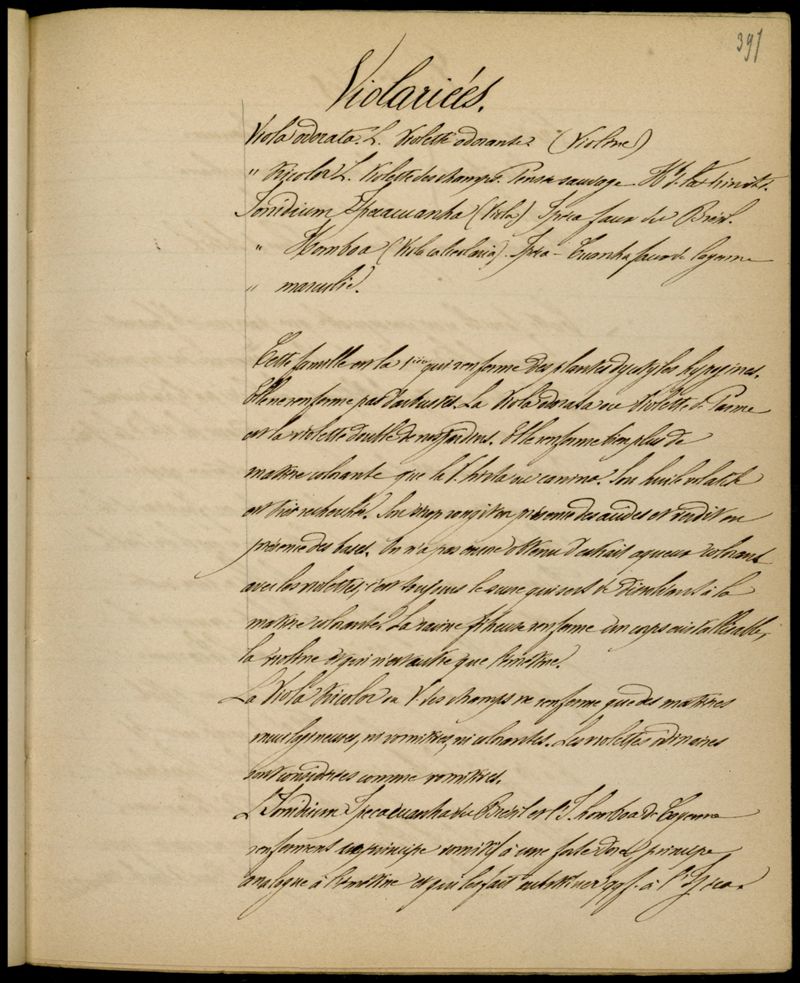 391
Violariées.
Viola odorata. L. Violette odorante (Violine)
" tricolor L. Violette des champs. Pensée sauvage. Hbe de la trinité.
Ionidium Ipecacuanha (Viola) Ipéca faux du Brésil.
" Itoubou (Viola calceolaria). Ipéca-Cuanha faux de Cayenne
"
Cette famille est la 1ière qui renferme des plantes hypogines.
Elle ne renferme pas d'arbustes. La Viola odorata ou Violette de Parme
est la violette double de nos jardins. Elle renferme bien plus de
matière colorante que la V. hirta ou canina. Son huile
est très recherchée. Son sirop rougit en présence des acides et verdit en
présence des bases. On n'a pas encore obtenu d'extrait aqueux colorant
avec les violettes, c'est toujours le sucre qui sert de à la
matière colorante. La racine fibreuse renferme un corps cristallisable,
la violine et qui n'est autre que l'émétine.
La Viola tricolor ou V. des champs ne renferme que des matières
mucilagineuses, ni vomitives, ni colorantes. Les violettes ordinaires
sont considérées comme vomitives.
L'Ionidium Ipecacuanha du Brésil et l'I. Itoubou de Cayenne
renferment un principe vomitif à une forte dose, principe
analogue à l'émétine et qui les fait substituer qqf. à l'Ipéca